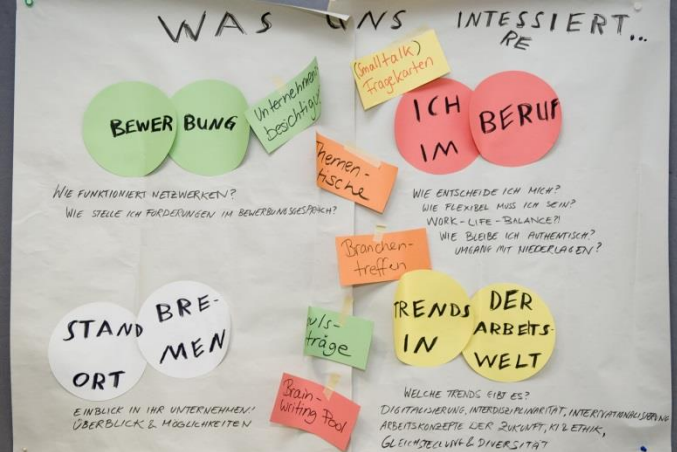 WAS UNS INTESSIERT...
RE
(Smalltalk)
Fragekarten
Unternehmens
besichtigu
BEWER BUNG
ICH
IM
BERUF
Themen-
tische
WIE FUNKTIONIERT NETZWERKEN?
WIE STELLE ICH FORDERUNGEN IM BEWERBUNGSGESPRÄCH?
WIE ENTSCHEIDE ICH MICH?
WIE FLEXIBEL MUSS ICH SEIN?
WORK-LIFE-BALANCE?!
WIE BLEIBE ICH AUTHENTISCH?
UMGANG MIT NIEDERLAGEN?
Branchen-
treffen
STAND
ORT
BRE-
MEN
TRENDS
IN
DER
ARBEITS-
WELT
puls-
träge
Brain-
writing Pool
EINBLICK IN IHR UNTERNEHMEN!
ÜBERBLICK & MÖGLICHKEITEN
WELCHE TRENDS GIBT ES?
DIGITALISIERUNG, INTERDISZIPLINARITÄT, INTERNATIONALISIERUNG
ARBEITSKONZEPTE DER ZUKUNFT, KI & ETHIK,
GLEICHSTELLUNG & DIVERSITÄT